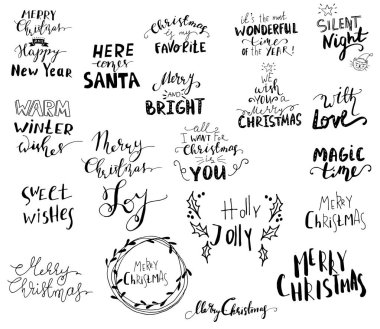 MERRY
Christmas
AND
Happy
New Year
HERE
comes
SANTA
Christmas
is my
FAVORITE
it's the most
WONDERFUL
time
OF THE YEAR!
SILENT
Night
WARM
WINTER
wishes
Merry
AND
BRIGHT
WE
wish
YOU a
Merry
CHRISTMAS
With
Love
Merry
Christmas
all
I WANT FOR
Christmas
is
YOU
MAGIC
time
Sweet
wishes
Joy
Holly
Jolly
MERRY
CHRISTMAS
Merry
Christmas
MERRY
CHRISTMAS
MERRY
CHRISTMAS
Merry Christmas